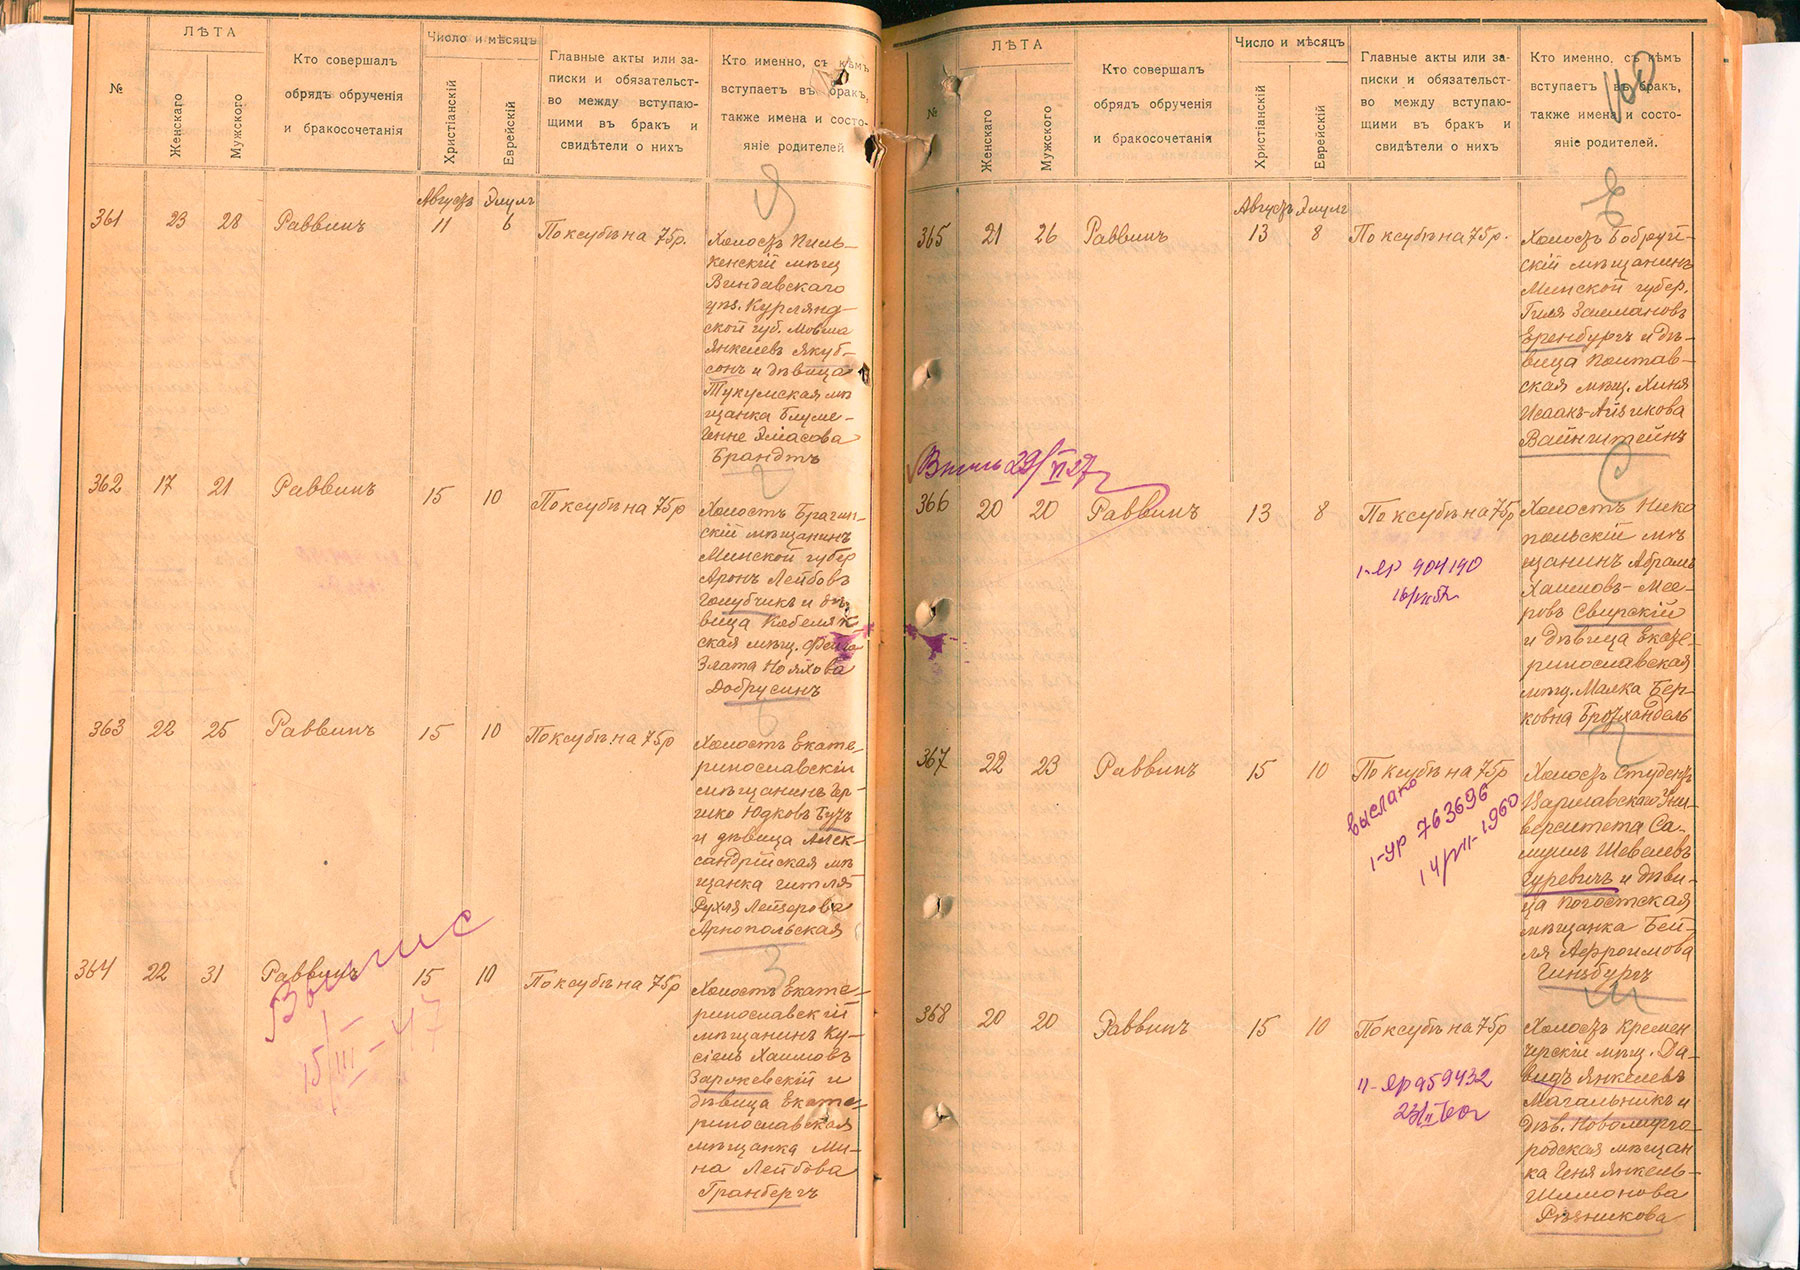 №
ЛѢТА
Женскаго
Мужского
Кто совершалъ
обрядъ обрученія
и бракосочетанія
Число и мѣсяцъ
Христіанскій
Еврейскій
Главные акты или за-
писки и обязательст-
во между вступаю-
щими въ бракъ и
свидѣтели о нихъ
Кто именно, съ кѣмъ
вступаетъ въ бракъ,
также имена и состо-
яніе родителей
Августъ Элулъ
361 23 28 Раввинъ 11 6 По ксубѣ на 75р.
Холостъ Пиль-
тенскій мѣщ
Виндавскаго
уѣз. Курлянд-
ской губ. Мовша
Янкелевъ Якуб-
сонъ и дѣвица
Тукумская мѣ
щанка Блуме-
Генне Эліасова
Брандтъ
362 17 21 Раввинъ 15 10 По ксубѣ на 75р
Холостъ Брагин-
скій мѣщанинъ
Минской губер
Аронъ Лейбовъ
Голубчикъ и дѣ
вица Кобеляк
ская мѣщ. Фейга
Злата Нояхова
Добрусинъ
363 22 25 Раввинъ 15 10 По ксубѣ на 75р
Холостъ Екате-
ринославскій
мѣщанинъ Гер-
шко Юдковъ Бузъ
и дѣвица Алек-
сандрійская мѣ
щанка Гитля
Рухля Лейзерова
Арнопольская
364 22 31 Раввинъ 15 10 По ксубѣ на 75р
Выпис
15/III-47
Холостъ Екате-
ринославскій
мѣщанинъ Ку-
сіель Хаимовъ
Заржевскій и
дѣвица Екате-
ринославская
мѣщанка Ми-
на Лейбова
Гранбергъ
160
№
ЛѢТА
Женскаго
Мужского
Кто совершалъ
обрядъ обрученія
и бракосочетанія
Число и мѣсяцъ
Христіанскій
Еврейскій
Главные акты или за-
писки и обязательст-
во между вступаю-
щими въ бракъ и
свидѣтели о нихъ
Кто именно, съ кѣмъ
вступаетъ въ бракъ,
также имена и состо-
яніе родителей.
Августъ Элулъ
365 21 26 Раввинъ 13 8 По ксубѣ на 75р.
Холостъ Бобруй-
скій мѣщанинъ
Минской губер.
Гиля Залмановъ
Еренбургъ и дѣ-
вица Полтав-
ская мѣщ. Хиня
Исаакъ-Айзикова
Вайнштейнъ
29/VI 27
366 20 20 Раввинъ 13 8 По ксубѣ на 75р
I-ЯР 904190
Холостъ Нико
польскій мѣ
щанинъ Абрамъ
Хаимовъ-Мее-
ровъ Свирскій
и дѣвица Екате-
ринославская
мѣщ. Малка Бер-
ковна Бройхандель
367 22 23 Раввинъ 15 10 По ксубѣ на 75р
выслано
I-УР 763696
14/VII-1960
Холостъ Студентъ
Варшавскаго Уни-
верситета Са-
муилъ Шевелевъ
Гуревичъ и дѣви-
ца Погостская
мѣщанка Бей-
ля Афроимова
Гинзбургъ
368 20 20 Раввинъ 15 10 По ксубѣ на 75р
II-ЯР 959432
Холостъ Кремен
чугскій мѣщ. Да-
видъ Янкелевъ
Магальникъ и
дѣв. Новомирго-
родская мѣщан
ка Геня Янкель-
Шимонова
Рѣзникова